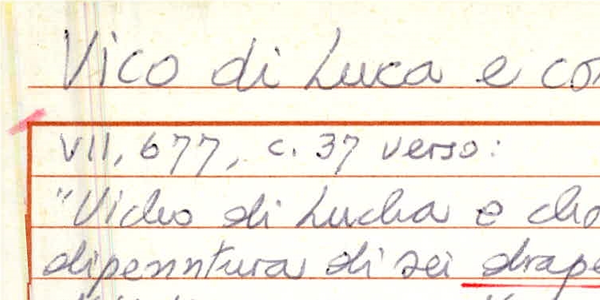 Vico di Luca e co
VII, 677, c. 37 verso:
"Vicho di Lucha e cho
dipenntura di sei drape